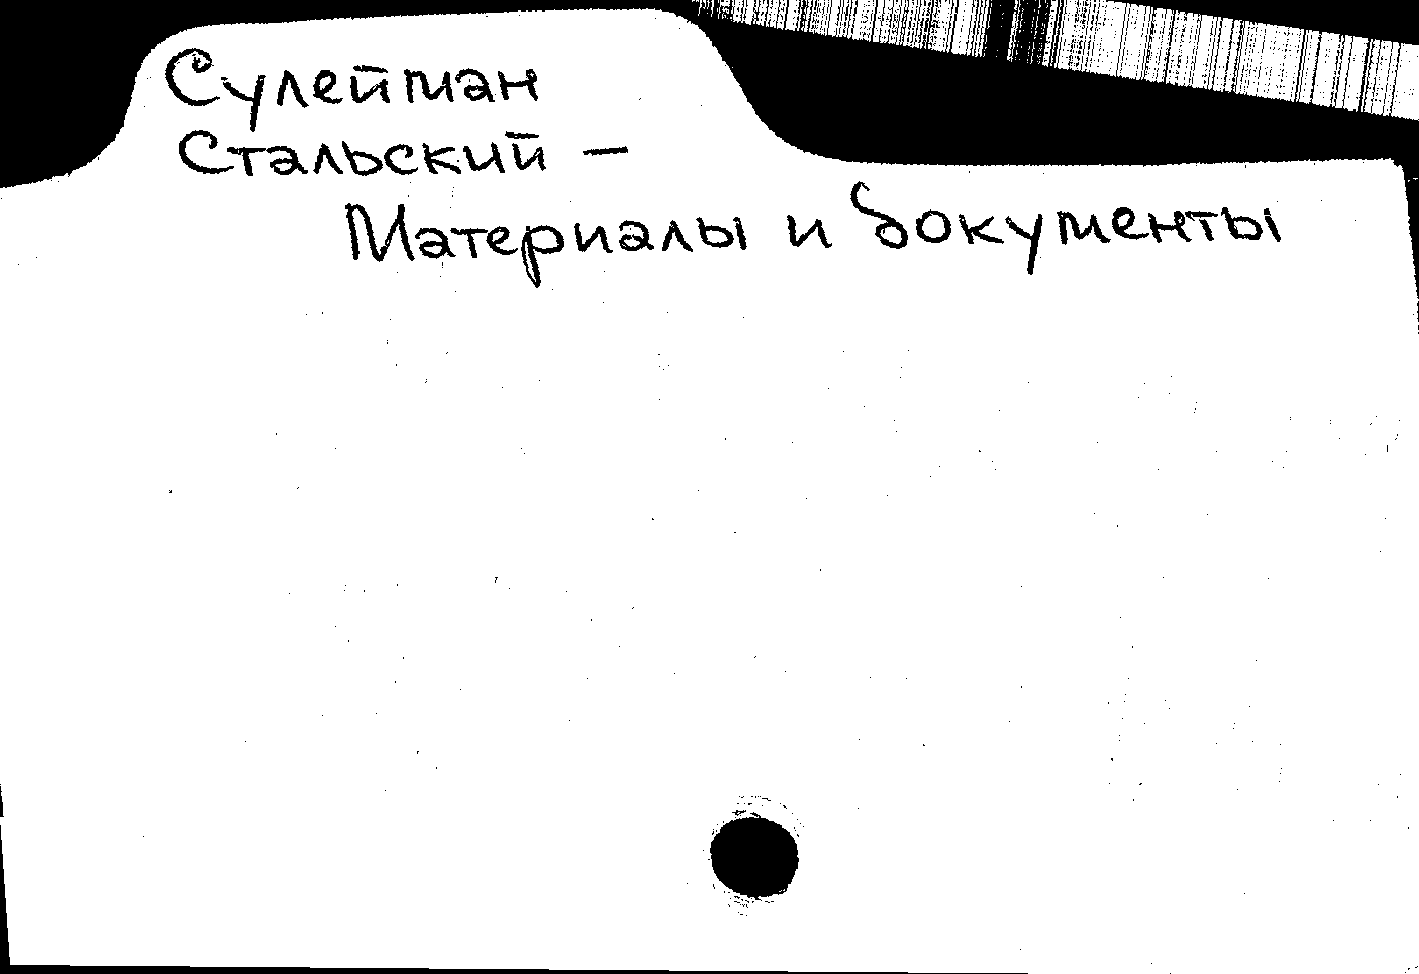 Сулейман
Стальский –
Материалы и документы